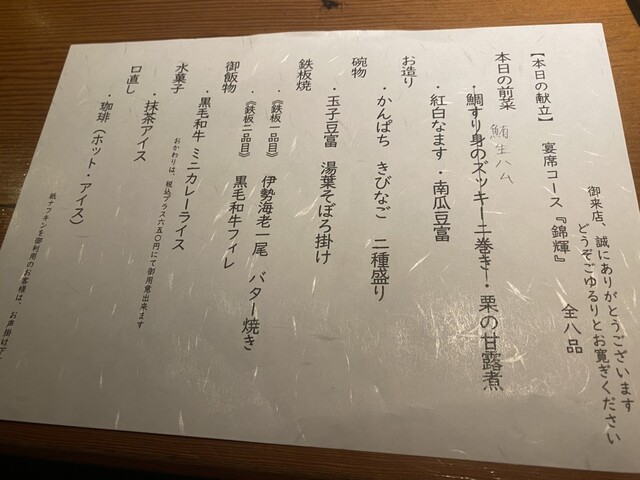 御来店、誠にありがとうございます
どうぞごゆるりとお寛ぎください
【本日の献立】 宴席コース『錦輝』 全八品
本日の前菜
鮪生ハム
・鯛すり身のズッキーニ巻き・栗の甘露煮
・紅白なます・南瓜豆富
お造り
・かんぱち きびなご 二種盛り
碗物
・玉子豆富 湯葉そぼろ掛け
鉄板焼
・《鉄板一品目》 伊勢海老一尾 バター焼き
《鉄板二品目》 黒毛和牛フィレ
御飯物
・黒毛和牛 ミニカレーライス
おかわりは、税込プラス六五〇円にて御用意出来ます
水菓子
・抹茶アイス
口直し
・珈琲（ホット・アイス）
紙ナプキンを御利用のお客様は、お声掛け下